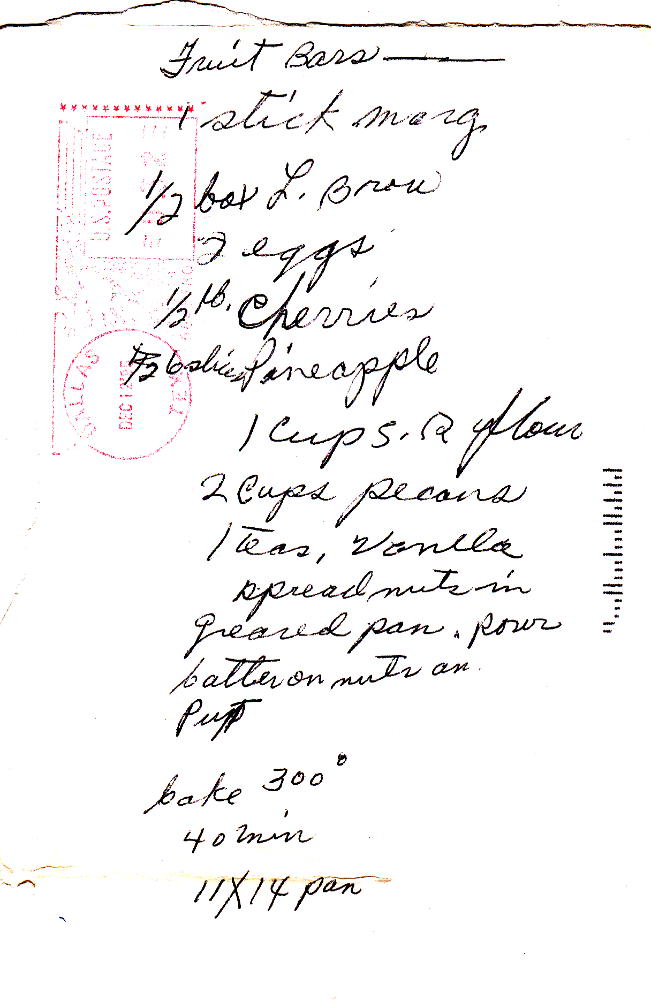 Fruit Bars
1 stick marg,
1/2 box L. Brow
2 eggs
1/2 lb. Cherries
6 slices Pineapple
1 Cup S. R flour
2 Cups pecans
1 Teas, Vanilla
spread nuts in
greased pan. pour
batter on nuts an
Put
bake 300°
40 min
11X14 pan
U.S. POSTAGE
DALLAS
DEC 12
TEX